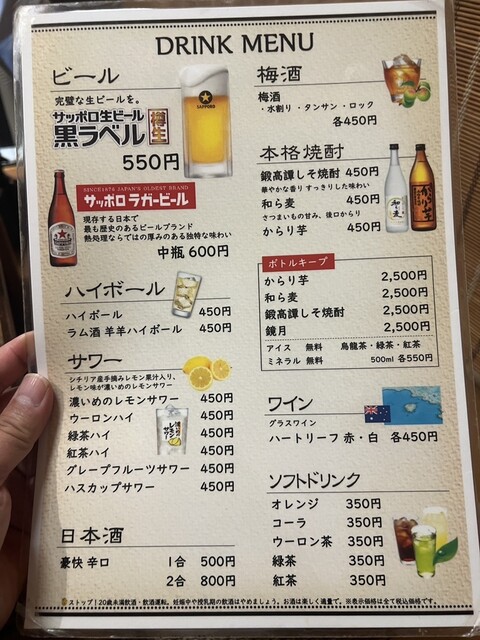 DRINK MENU
ビール
完璧な生ビールを。
サッポロ生ビール
黒ラベル 樽生
550円
SAPPORO
SINCE1876 JAPAN'S OLDEST BRAND
サッポロ ラガービール
現存する日本で
最も歴史のあるビールブランド
熱処理ならではの厚みのある独特な味わい
中瓶 600円
ハイボール
ハイボール 450円
ラム酒 羊羊ハイボール 450円
サワー
シチリア産手摘みレモン果汁入り、
レモン味が濃いめのレモンサワー
濃いめのレモンサワー 450円
ウーロンハイ 450円
緑茶ハイ 450円
紅茶ハイ 450円
グレープフルーツサワー 450円
ハスカップサワー 450円
濃いめの
レモン
サワー
日本酒
豪快 辛口 1合 500円
2合 800円
梅酒
梅酒
・水割り ・タンサン ・ロック
各450円
本格焼酎
鍛高譚しそ焼酎 450円
華やかな香り すっきりした味わい
和ら麦 450円
さつまいもの甘み、後口からり
からり芋 450円
和ら麦
からり芋
ボトルキープ
からり芋 2,500円
和ら麦 2,500円
鍛高譚しそ焼酎 2,500円
鏡月 2,500円
アイス 無料 烏龍茶・緑茶・紅茶
ミネラル 無料 500ml 各550円
ワイン
グラスワイン
ハートリーフ 赤・白 各450円
ソフトドリンク
オレンジ 350円
コーラ 350円
ウーロン茶 350円
緑茶 350円
紅茶 350円
ストップ！20歳未満飲酒・飲酒運転。妊娠中や授乳期の飲酒はやめましょう。お酒は楽しく適量で。※表示価格は全て税込価格です。